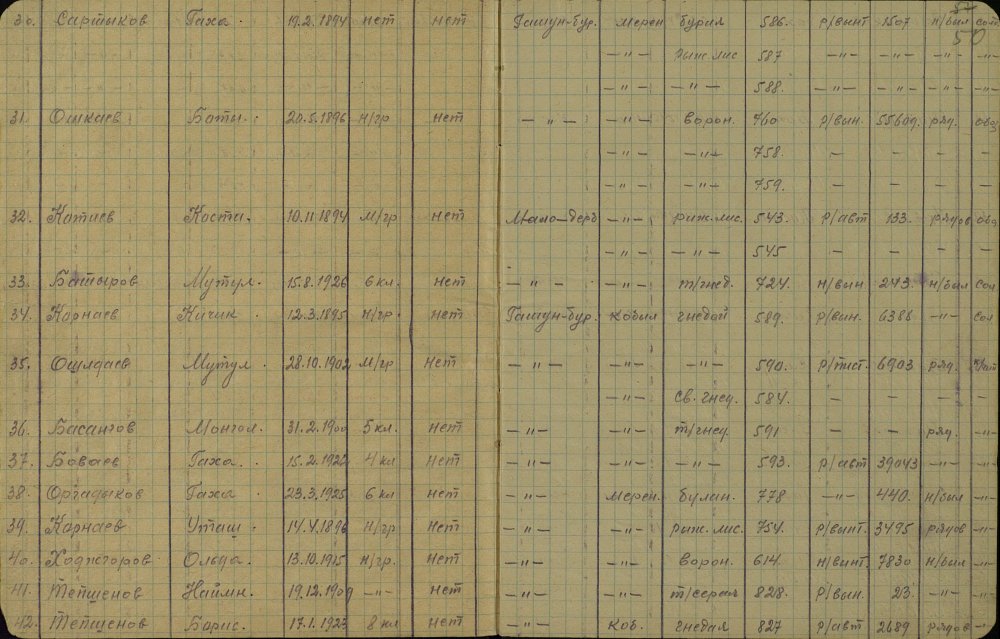 30. Сартыков Гаха. 19.2.1894 нет нет Гашун-бур. мерен бурая 586. р/винт 1507 н/был 50
—„— рыж.лис 587 —„— —„— —„— —„—
—„— —„— 588. —„— —„— —„— —„—
31. Ошкаев Боты. 20.5.1896 н/гр нет —„— —„— ворон. 760 р/вин. ряд.
—„— —„— 758. — — — —
—„— —„— 759. — — — —
32. Катаев Коста. 10.11.1894 м/гр нет Мало-Дерб —„— рыж.лис. 543. р/авт 133. рядов
—„— —„— 545 — — — —
33. Батыров Мутул. 15.8.1926 6 кл. нет —„— —„— т/гнед. 724. н/вин. 243. н/был сол
34. Карнаев Кичик. 12.3.1895 н/гр. нет Гашун-бур. кобыл гнедой 589. р/вин. 6386 —„— сол
35. Ошлдаев Мутул. 28.10.1902 м/гр нет —„— —„— —„— 590. р/пист. 6903 ряд.
—„— св. гнед. 584. — — — —
36. Басангов Монгол. 31.2.1900 5 кл. нет —„— —„— т/гнед. 591 — — ряд. —„—
37. Боваев Гаха. 15.2.1922 4 кл нет —„— —„— —„— 593. р/авт 39043 —„— —„—
38. Оргадыков Гаха. 23.3.1925 6 кл нет —„— мерен. булан. 778 —„— 440. н/был —„—
39. Карнаев Уташ. 14.4.1896 н/гр нет —„— —„— рыж.лис. 754. р/винт. 3495 рядов —„—
40. Ходжгоров Ользда. 13.10.1915 н/гр. нет —„— —„— ворон. 614. н/винт. 7830 н/был —„—
41. Тепшенов Наймн. 19.12.1909 —„— нет —„— —„— т/серая 828. р/вин. 23. —„— —„—
42. Тепшенов Борис. 17.1.1923 8 кл нет —„— коб. гнедая 827 р/авт 2689 рядов —„—